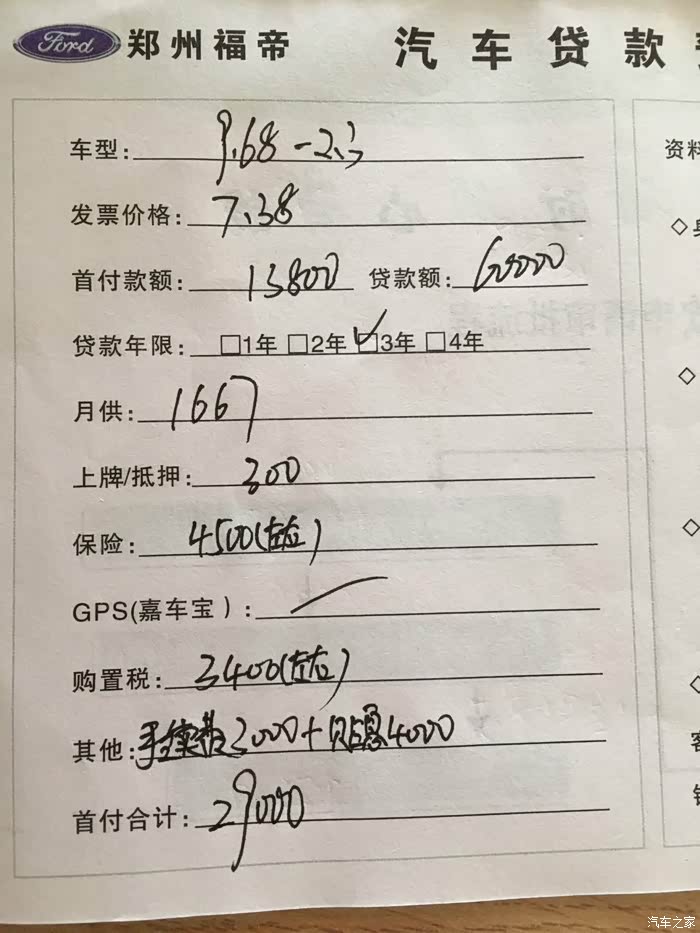 Ford 郑州福帝 汽车贷款
车型: 9.68-2.3
资料
发票价格: 7.38
首付款额: 13800 贷款额: 60000
贷款年限: □1年 □2年 ☑3年 □4年
月供: 1667
上牌/抵押: 300
保险: 4500(左右)
GPS(嘉车宝):
购置税: 3400(左右)
其他: 手续费3000+贴息4000
首付合计: 29000
汽车之家